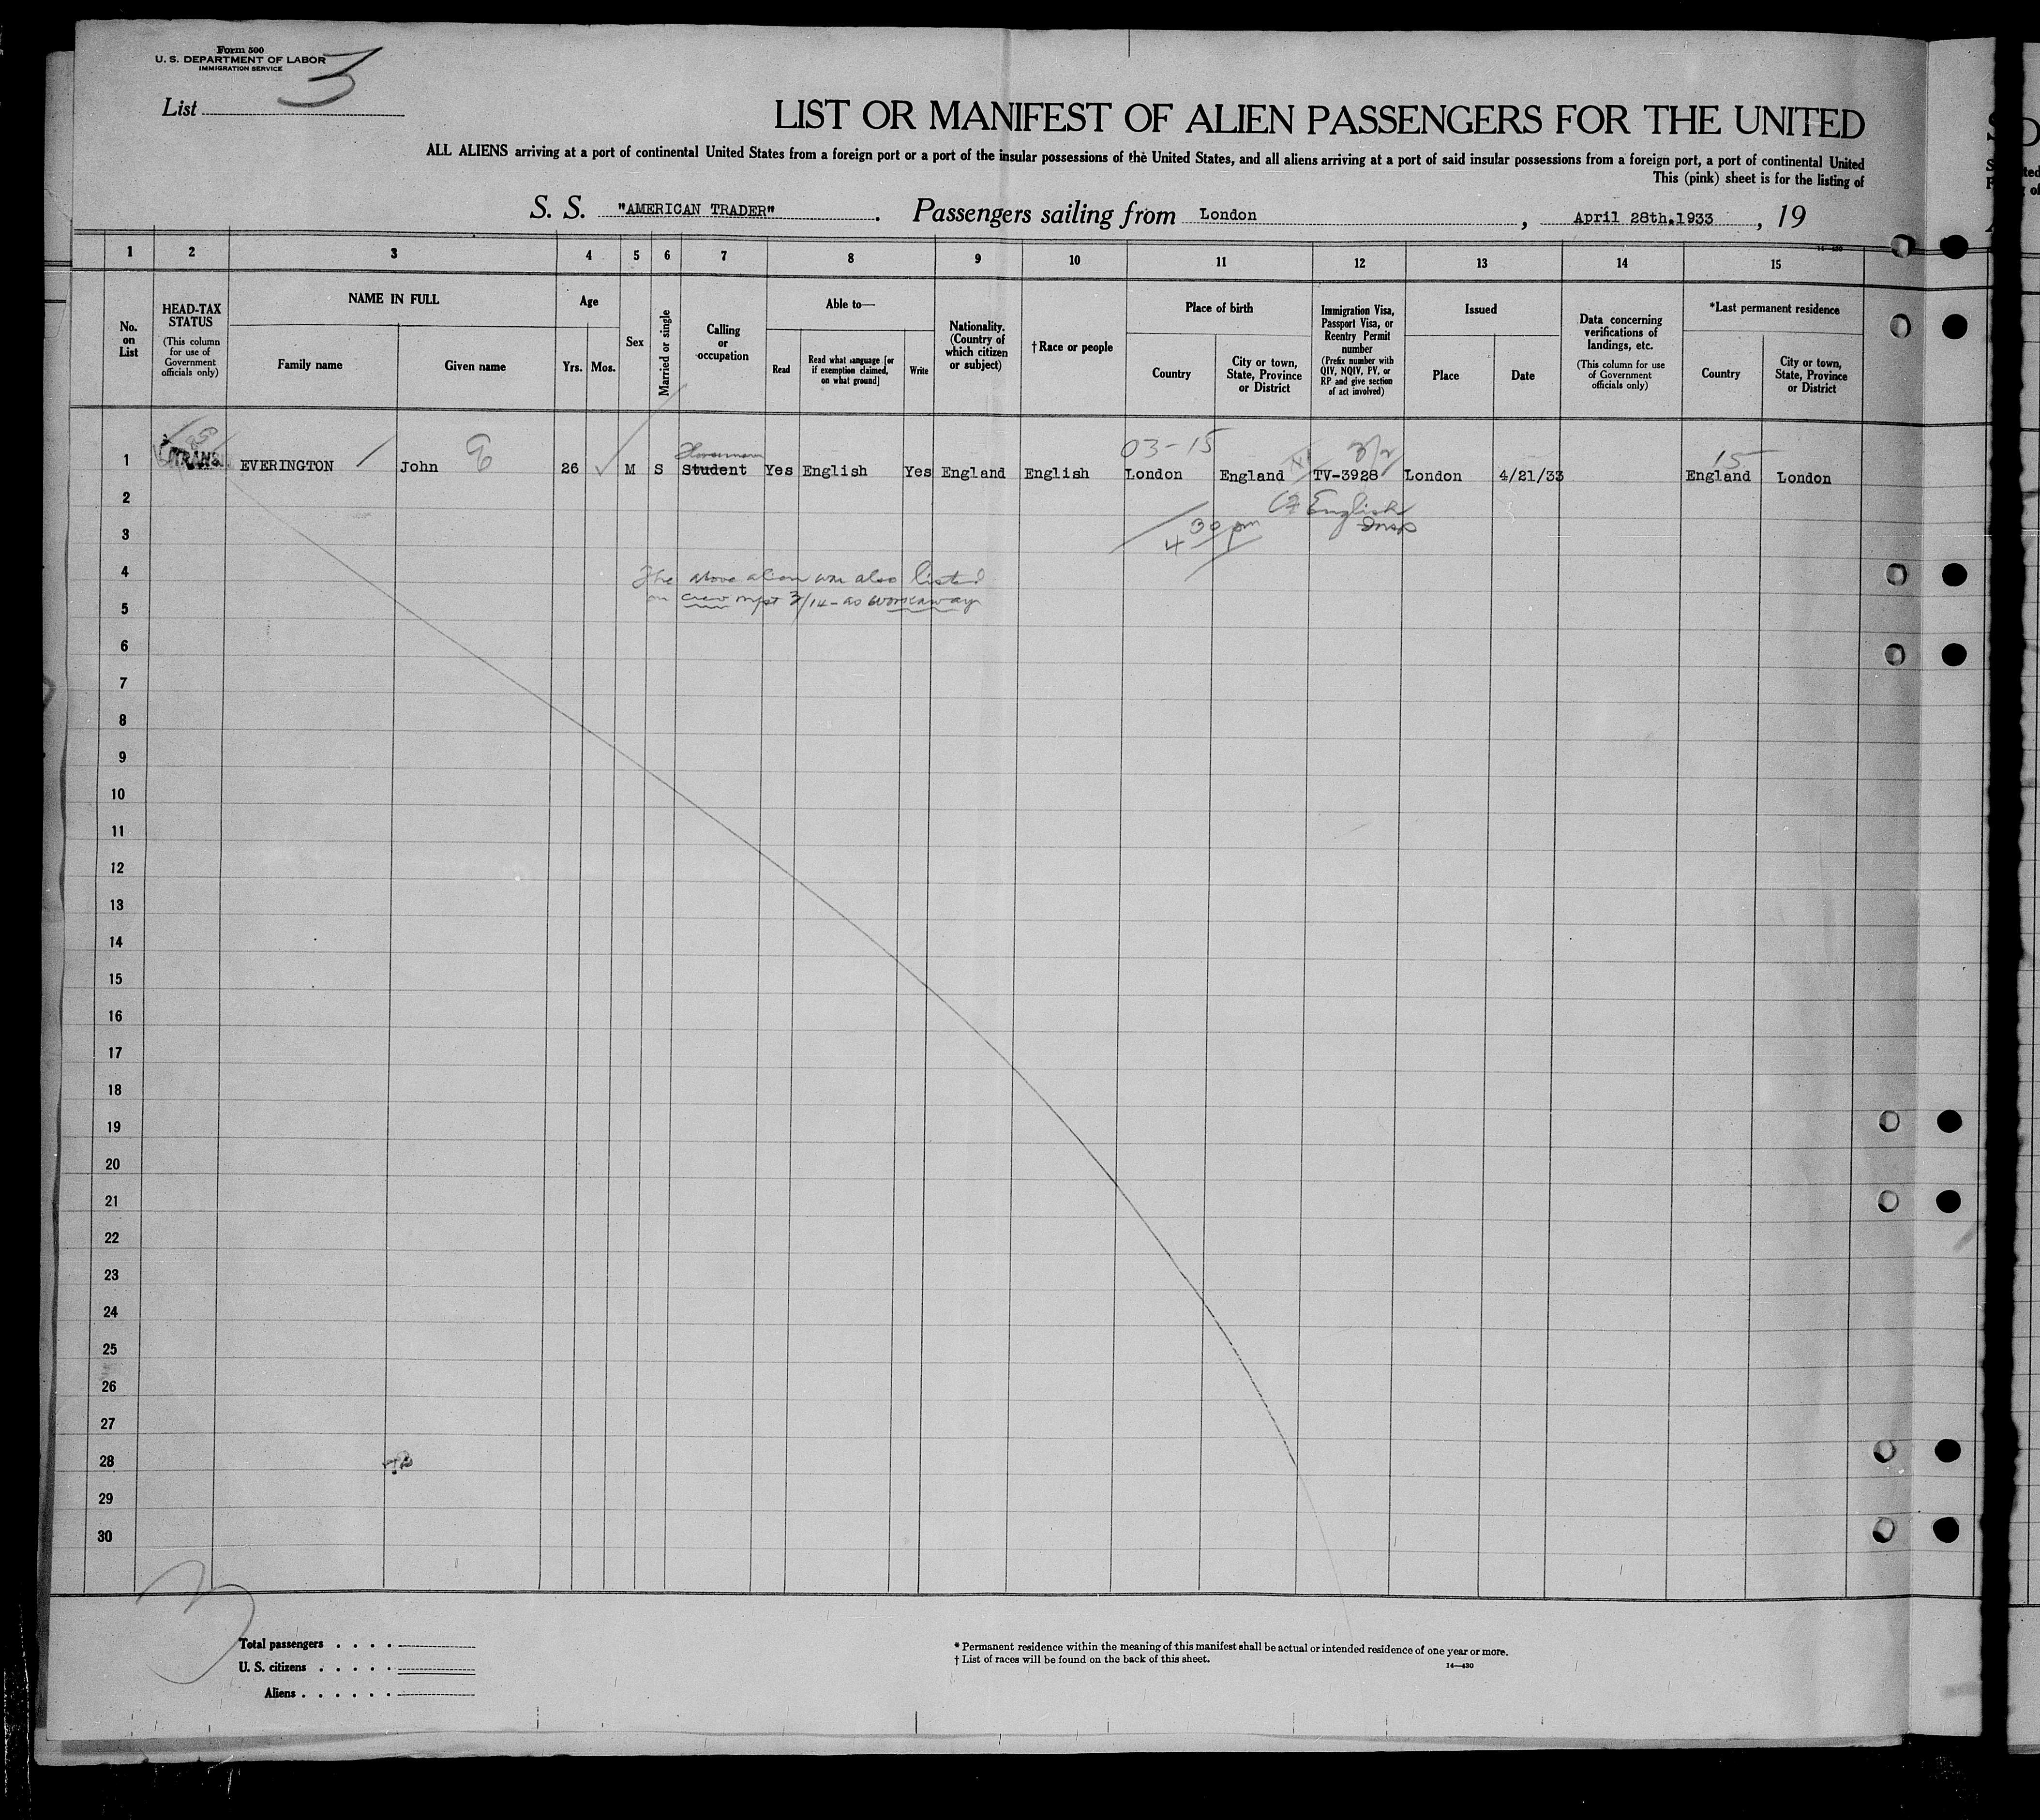 Form 500
U. S. DEPARTMENT OF LABOR
IMMIGRATION SERVICE
List 3
LIST OR MANIFEST OF ALIEN PASSENGERS FOR THE UNITED
ALL ALIENS arriving at a port of continental United States from a foreign port or a port of the insular possessions of the United States, and all aliens arriving at a port of said insular possessions from a foreign port, a port of continental United
This (pink) sheet is for the listing of
S. S. "AMERICAN TRADER". Passengers sailing from London, April 28th.1933, 19
1 2 3 4 5 6 7 8 9 10 11 12 13 14 15
No. on List
HEAD-TAX STATUS
(This column for use of Government officials only)
NAME IN FULL
Family name
Given name
Age
Yrs.
Mos.
Sex
Married or single
Calling or occupation
Able to—
Read
Read what language [or if exemption claimed, on what ground]
Write
Nationality. (Country of which citizen or subject)
† Race or people
Place of birth
Country
City or town, State, Province or District
Immigration Visa, Passport Visa, or Reentry Permit number
(Prefix number with QIV, NQIV, PV, or RP and give section of act involved)
Issued
Place
Date
Data concerning verifications of landings, etc.
(This column for use of Government officials only)
*Last permanent residence
Country
City or town, State, Province or District
03-15
15
1 TRANS EVERINGTON John 26 M S Student Yes English Yes England English London England TV-3928 London 4/21/33 England London
English
4 30 pm
The above alien was also listed
on crew mfst 3/14 - as workaway
2
3
4
5
6
7
8
9
10
11
12
13
14
15
16
17
18
19
20
21
22
23
24
25
26
27
28
29
30
3
Total passengers . . . .
U. S. citizens . . . . .
Aliens . . . . . .
* Permanent residence within the meaning of this manifest shall be actual or intended residence of one year or more.
† List of races will be found on the back of this sheet.
14—430